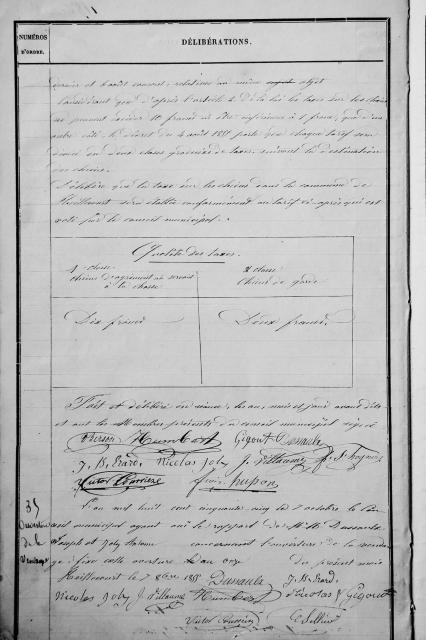 NUMÉROS
D'ORDRE.
DÉLIBÉRATIONS.
dernier et 6 août courant, relatives au même objet
Considérant que d'après l'article 2 de la loi les taxes sur les chiens
ne peuvent excéder 10 francs ni être inférieures à 1 franc, que d'un
autre côté le décret du 4 août 1855 porte que chaque tarif sera
divisé en deux classes de taxes, suivant la destination
des chiens.
Délibère que la taxe sur les chiens dans la commune de
sera établie conformément au tarif ci-après qui est
voté par le conseil municipal.
Quotité des taxes.
1e classe
chiens d'agrément ou servant
à la chasse
2e classe
Chiens de garde
Dix francs
Deux francs.
Fait et délibéré en séance, les an, mois et jour avant dits
et ont les Membres présents du conseil municipal signé
Humbert Gigout Dussaulx
J. B. Erard. Nicolas Joly J. Villaume
Victor
35
de la
L'an mil huit cent cinquante cinq le 7 octobre le Con
seil municipal ayant ouï le rapport de M.M. Dussaulx
Joseph et Joly concernant l'ouverture de la vendan
ge; fixe cette ouverture au onze du présent mois
le 7 8bre 1855 Dussaulx J. B. Erard.
Nicolas Joly J. Villaume Humbert Nicolas Gigout
Victor